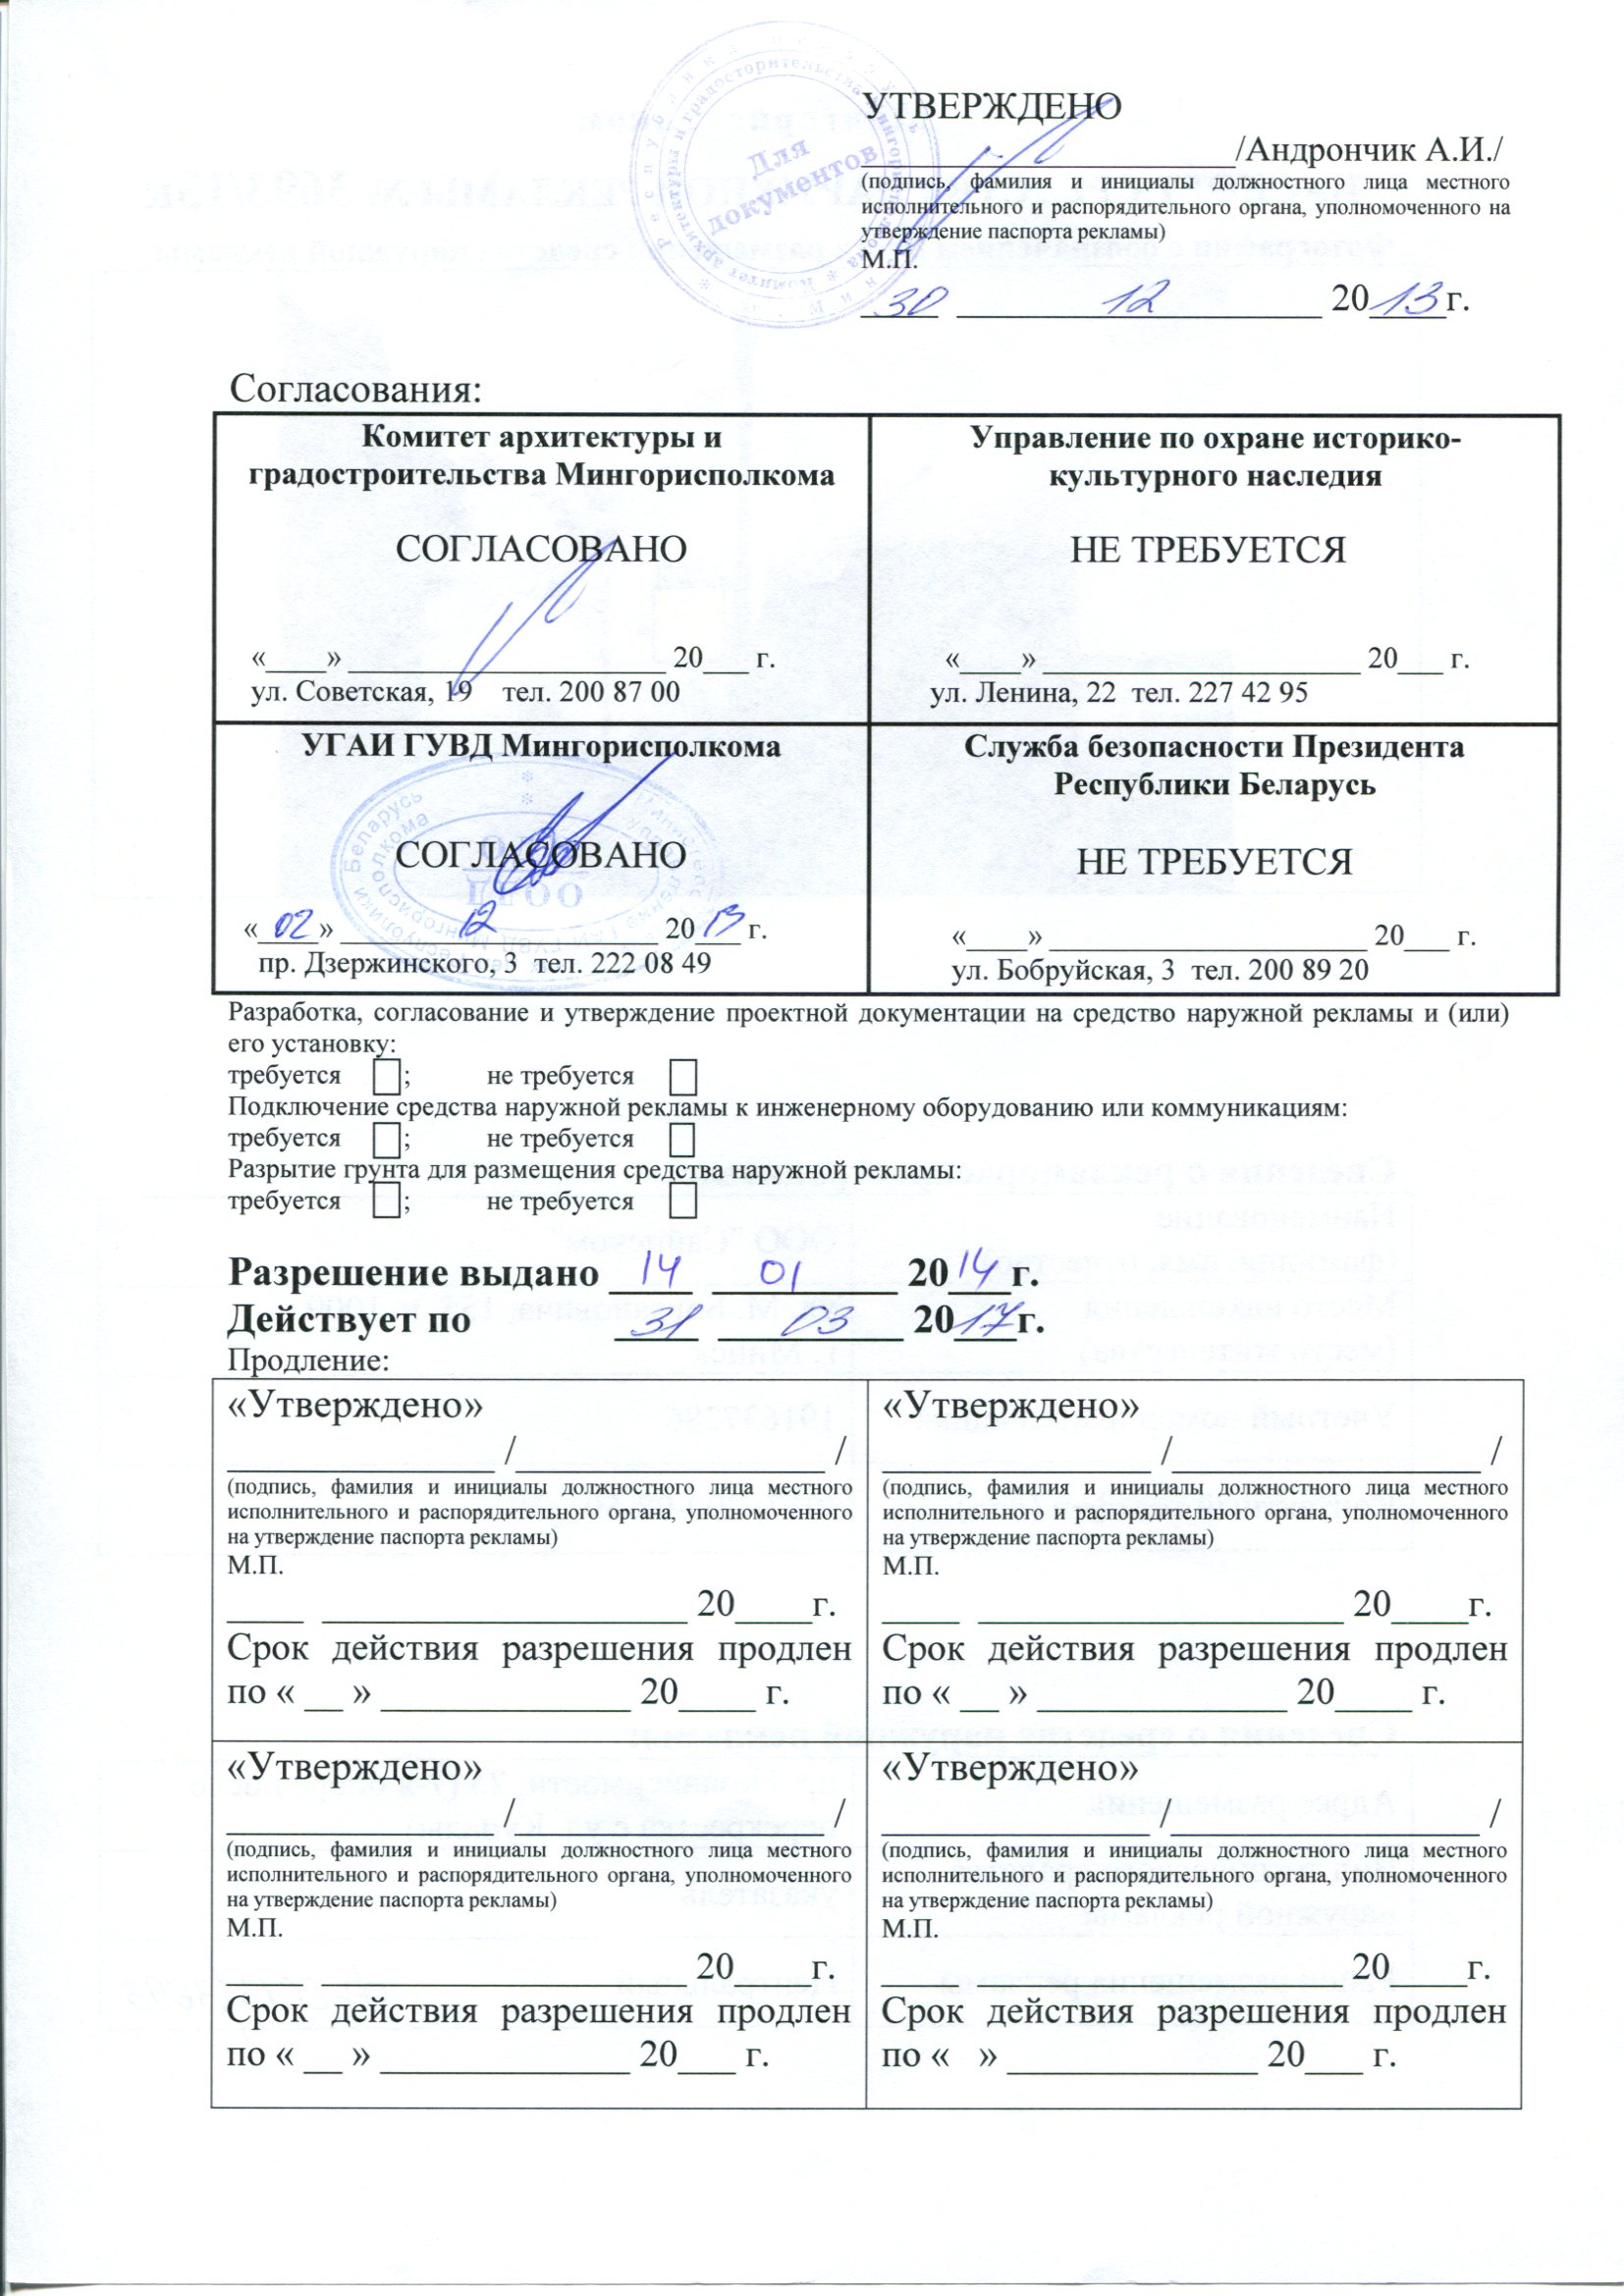 УТВЕРЖДЕНО
____________________/Андрончик А.И./
(подпись, фамилия и инициалы должностного лица местного
исполнительного и распорядительного органа, уполномоченного на
утверждение паспорта рекламы)
М.П.
30 12 2013г.
Для
документов
Согласования:
Комитет архитектуры и
градостроительства Мингорисполкома
СОГЛАСОВАНО
«____» ____________________ 20___ г.
ул. Советская, 19 тел. 200 87 00
Управление по охране историко-
культурного наследия
НЕ ТРЕБУЕТСЯ
«____» ____________________ 20___ г.
ул. Ленина, 22 тел. 227 42 95
УГАИ ГУВД Мингорисполкома
СОГЛАСОВАНО
«02» 12 2013 г.
пр. Дзержинского, 3 тел. 222 08 49
Служба безопасности Президента
Республики Беларусь
НЕ ТРЕБУЕТСЯ
«____» ____________________ 20___ г.
ул. Бобруйская, 3 тел. 200 89 20
Разработка, согласование и утверждение проектной документации на средство наружной рекламы и (или)
его установку:
требуется ; не требуется
Подключение средства наружной рекламы к инженерному оборудованию или коммуникациям:
требуется ; не требуется
Разрытие грунта для размещения средства наружной рекламы:
требуется ; не требуется
Разрешение выдано 14 01 2014г.
Действует по 31 03 2017г.
Продление:
«Утверждено»
______________ /________________ /
(подпись, фамилия и инициалы должностного лица местного
исполнительного и распорядительного органа, уполномоченного
на утверждение паспорта рекламы)
М.П.
____ ___________________ 20____г.
Срок действия разрешения продлен
по « __ » _____________ 20____ г.
«Утверждено»
______________ /________________ /
(подпись, фамилия и инициалы должностного лица местного
исполнительного и распорядительного органа, уполномоченного
на утверждение паспорта рекламы)
М.П.
____ ___________________ 20____г.
Срок действия разрешения продлен
по « __ » _____________ 20____ г.
«Утверждено»
______________ /________________ /
(подпись, фамилия и инициалы должностного лица местного
исполнительного и распорядительного органа, уполномоченного
на утверждение паспорта рекламы)
М.П.
____ ___________________ 20____г.
Срок действия разрешения продлен
по « __ » _____________ 20___ г.
«Утверждено»
______________ /________________ /
(подпись, фамилия и инициалы должностного лица местного
исполнительного и распорядительного органа, уполномоченного
на утверждение паспорта рекламы)
М.П.
____ ___________________ 20____г.
Срок действия разрешения продлен
по « » _____________ 20___ г.